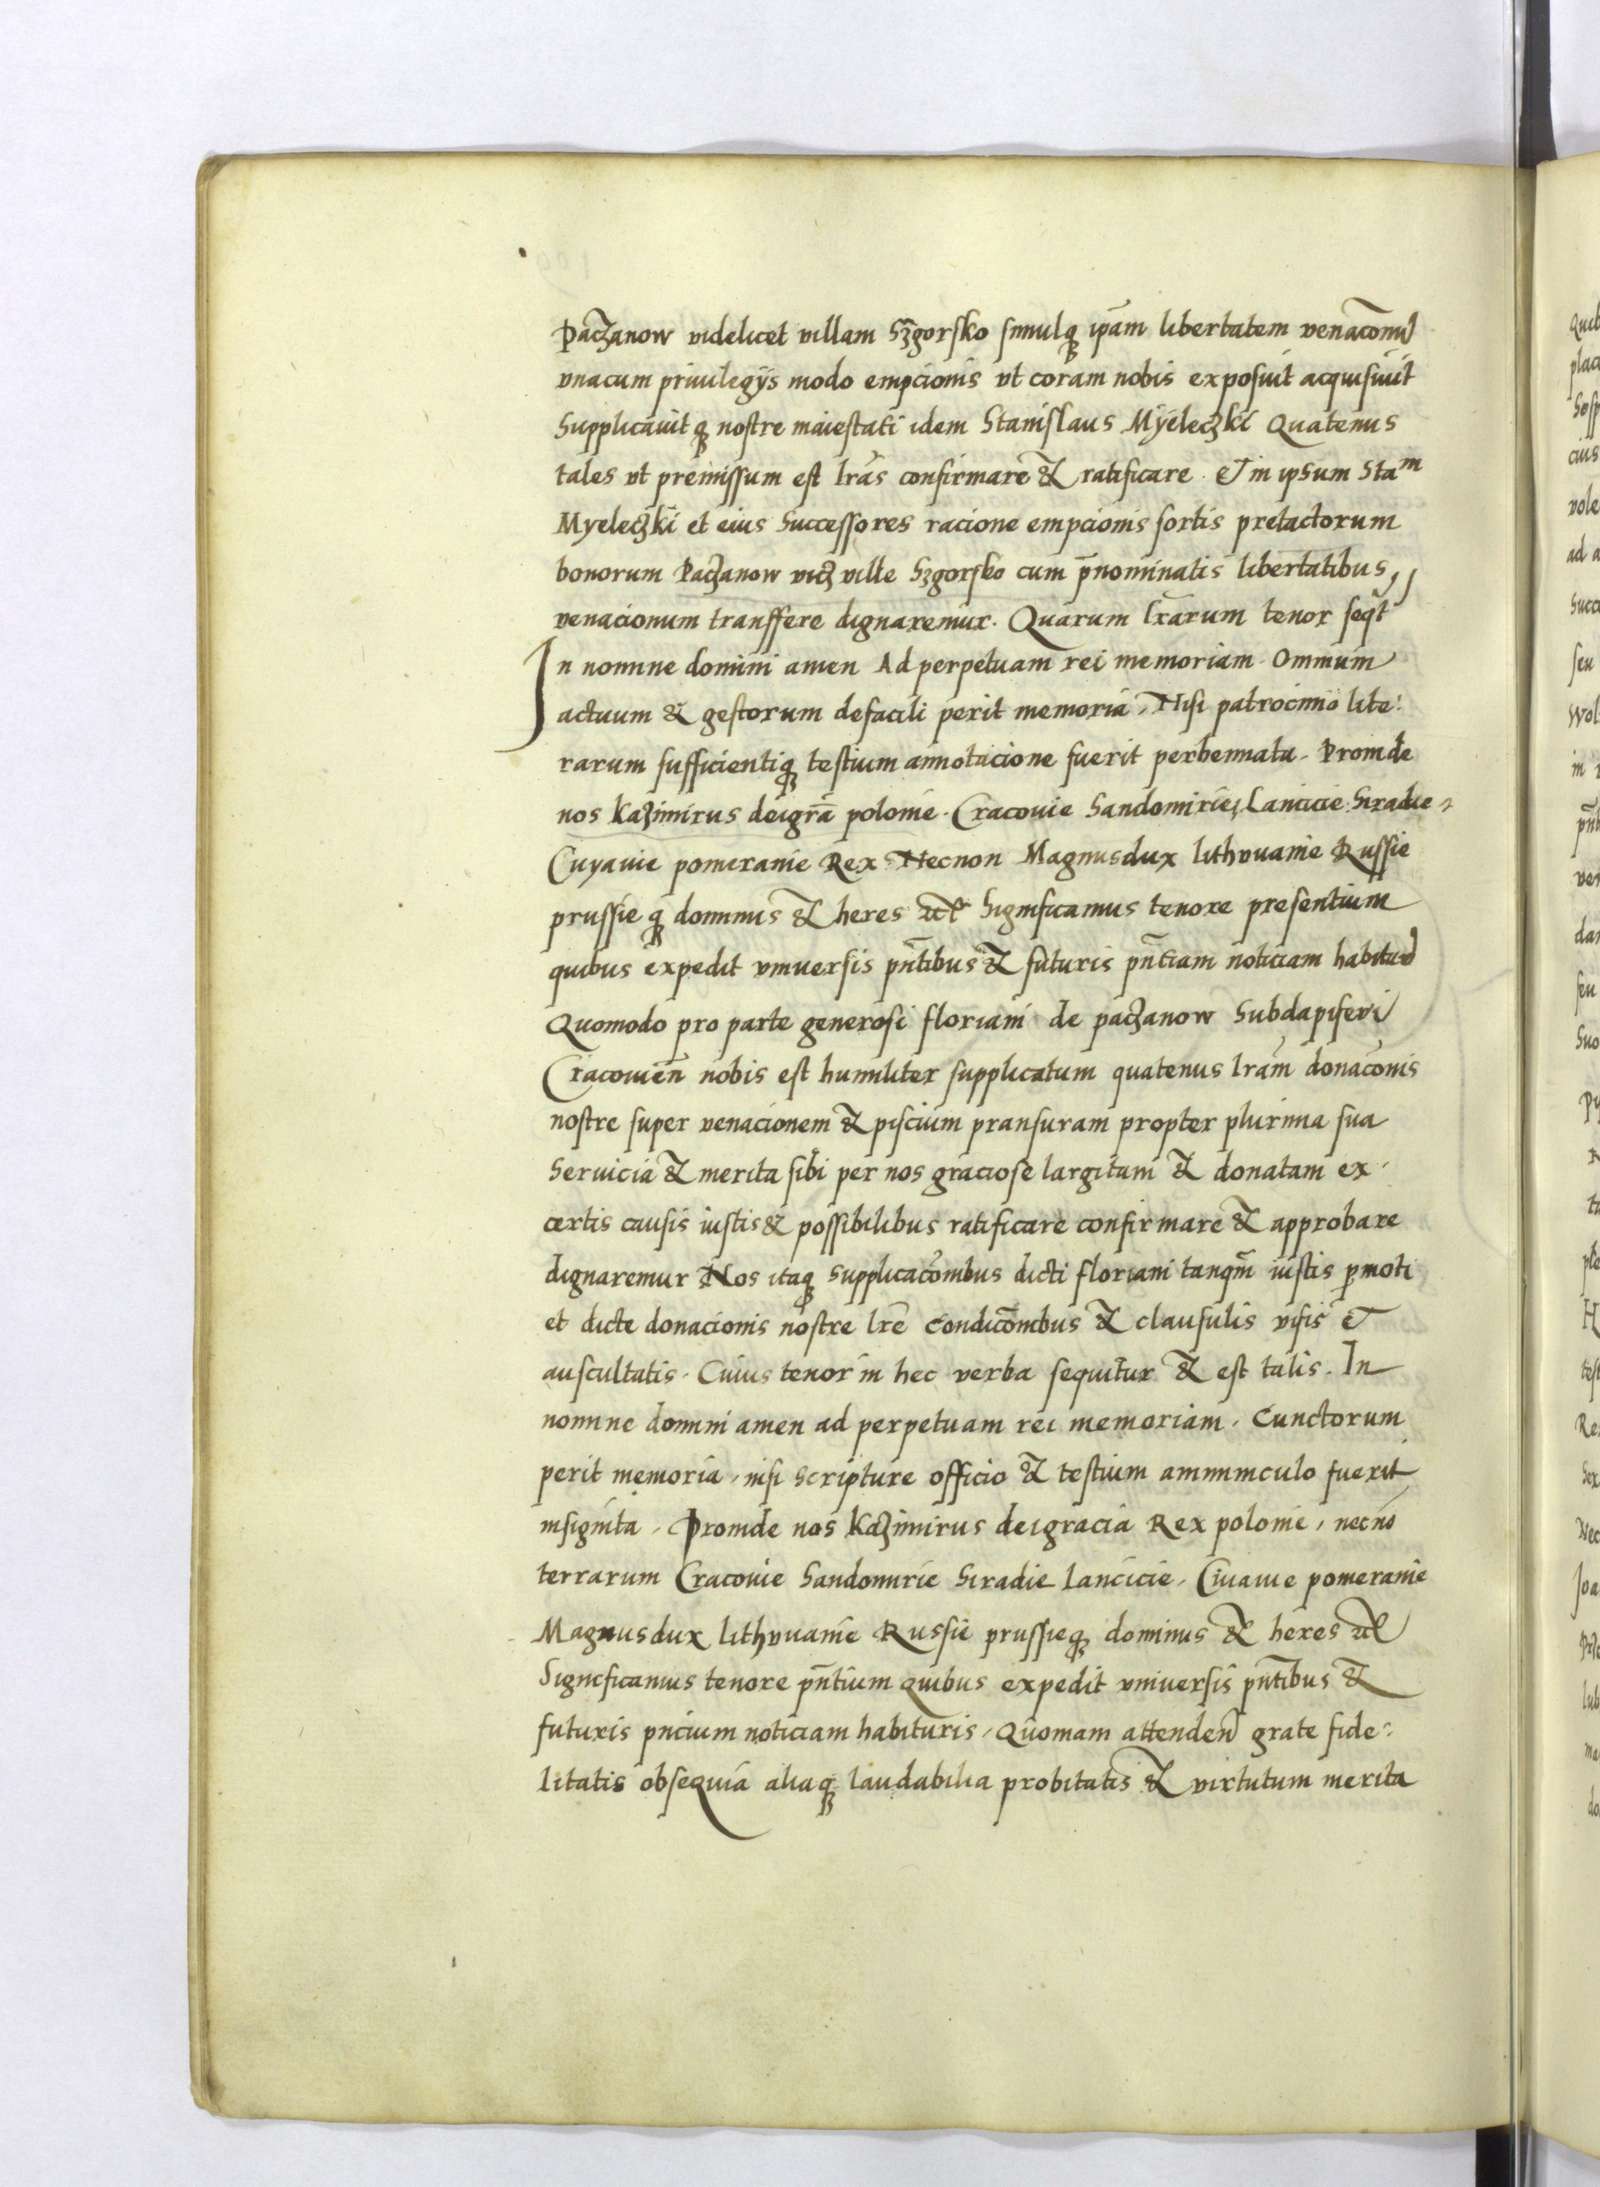 Paczanow videlicet villam Szgorsko simulq ipam libertatem venaconu
vnacum priuilegijs modo empcionis vt coram nobis exposuit acquisiuit
Supplicauitq nostre maiestati idem Stanislaus Myeleczki Quatenus
tales vt premissum est lras confirmare & ratificare. Et in ipsum Stam
Myeleczki et eius Successores racione empcionis sortis pretactorum
bonorum Paczanow vicz ville Szgorsko cum pnominatis libertatibus
venacionum transfere dignaremur. Quarum lrarum tenor seqt
In nomine domini amen Ad perpetuam rei memoriam. Omnium
actuum & gestorum defacili perit memoria, Nisi patrocinio lite:
rarum sufficientiq testium annotacione fuerit perhennata. Proinde
nos Kazimirus deigra polonie. Cracouie Sandomirie, Lancicie Siradie,
Cuyauie pomeranie Rex Necnon Magnusdux lithvuanie Russie
prussieq dominus & heres etc Significamus tenore presentium
quibus expedit vniuersis pntibus & futuris pntiam noticiam habitur
Quomodo pro parte generosi floriani de paczanow Subdapiferi
Cracouien nobis est humiliter supplicatum quatenus lram donaconis
nostre super venacionem & piscium pransuram propter plurima sua
Seruicia & merita sibi per nos graciose largitam & donatam ex.
certis causis iustis & possibilibus ratificare confirmare & approbare
dignaremur Nos itaq supplicacombus dicti floriani tanqm iustis pmoti
et dicte donacionis nostre lre condicombus & clausulis visis et
auscultatis. Cuius tenor in hec verba sequitur & est talis. In
nomine domini amen ad perpetuam rei memoriam. Cunctorum
perit memoria, nisi scripture officio & testium amminiculo fuerit
insignita, Proinde nos Kazimirus deigracia Rex polonie, necno
terrarum Cracouie Sandomirie Siradie Lancicie, Cuiauie pomeranie
Magnusdux lithvuanie Russie prussieq dominus & heres etc
Significamus tenore pntium quibus expedit vniuersis pntibus &
futuris pncium noticiam habituris, Quomam attenden grate fide:
litatis obsequia aliaq laudabilia probitatis & virtutum merita